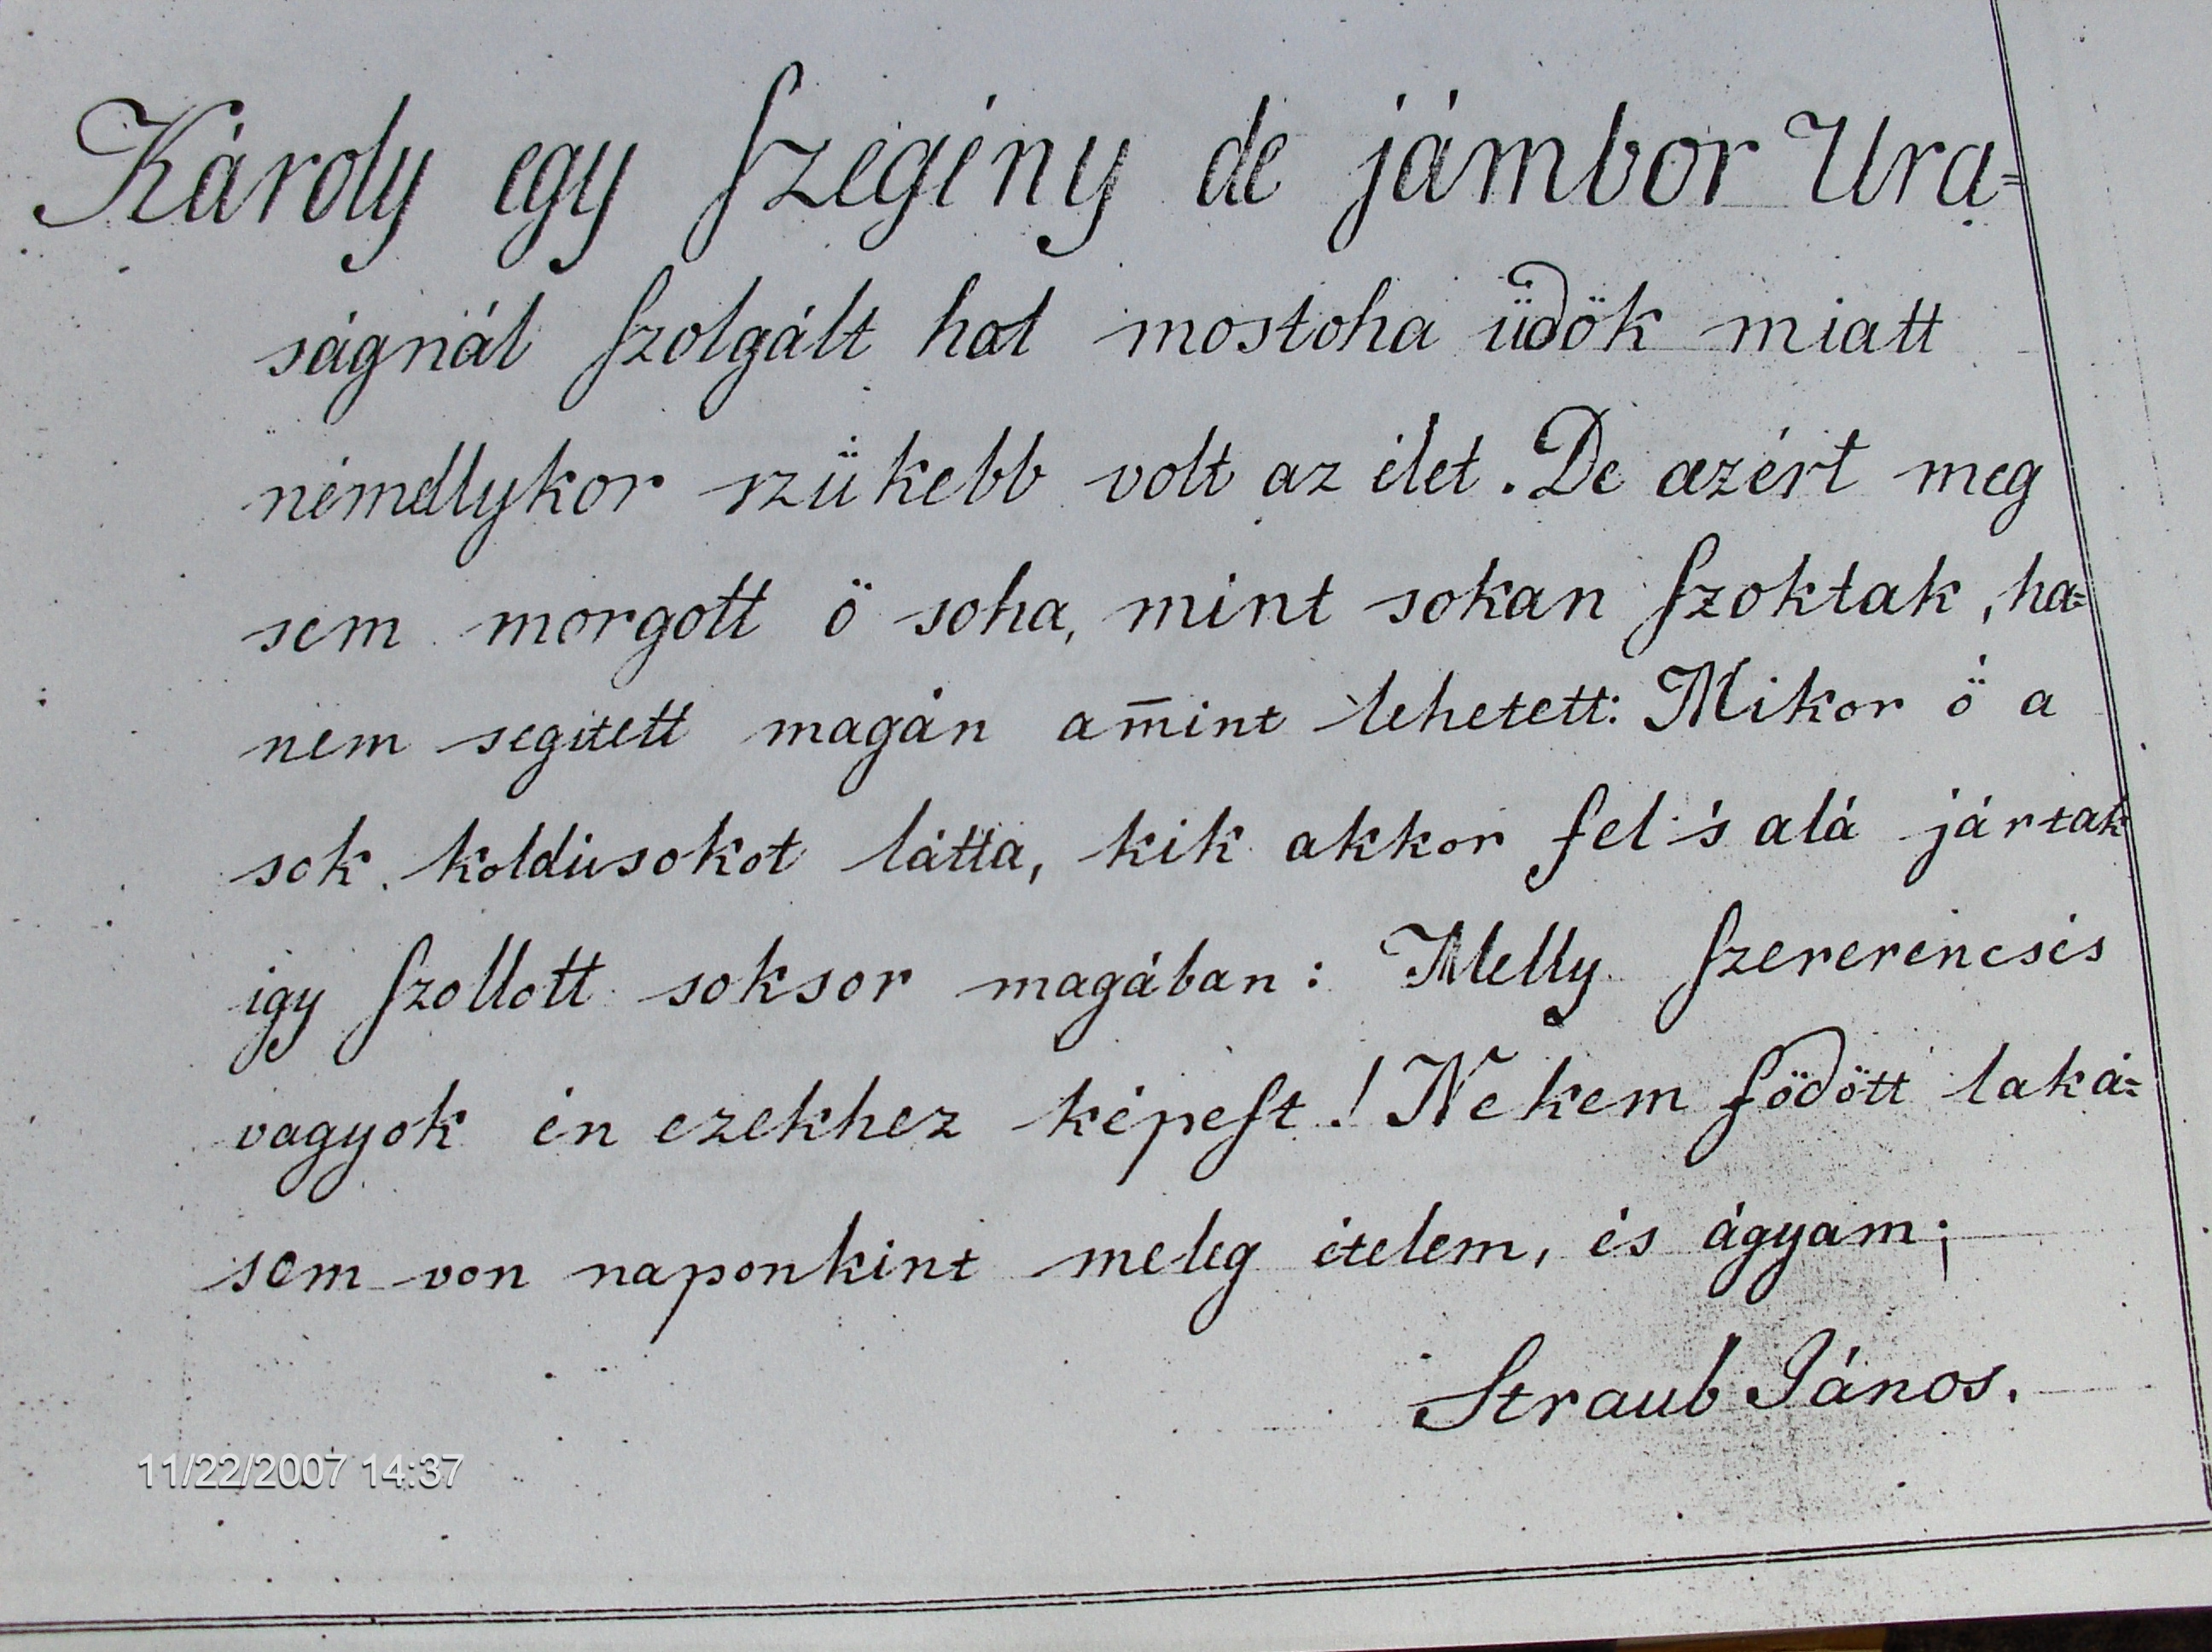 Károly egy szegény de jámbor Ura=
ságnál szolgált hol mostoha üdök miatt
némellykor szükebb volt az élet. De azért meg
sem morgott ö soha, mint sokan szoktak, ha=
nem segitett magán am̅int lehetett: Mikor ö a
sok koldúsokot látta, kik akkor fel 's alá jártak
igy szollott soksor magában: Melly szererencsés
vagyok én ezekhez képest! Nekem födött laká=
som von naponkint meleg ételem, és ágyam;
Straub János.
11/22/2007 14:37